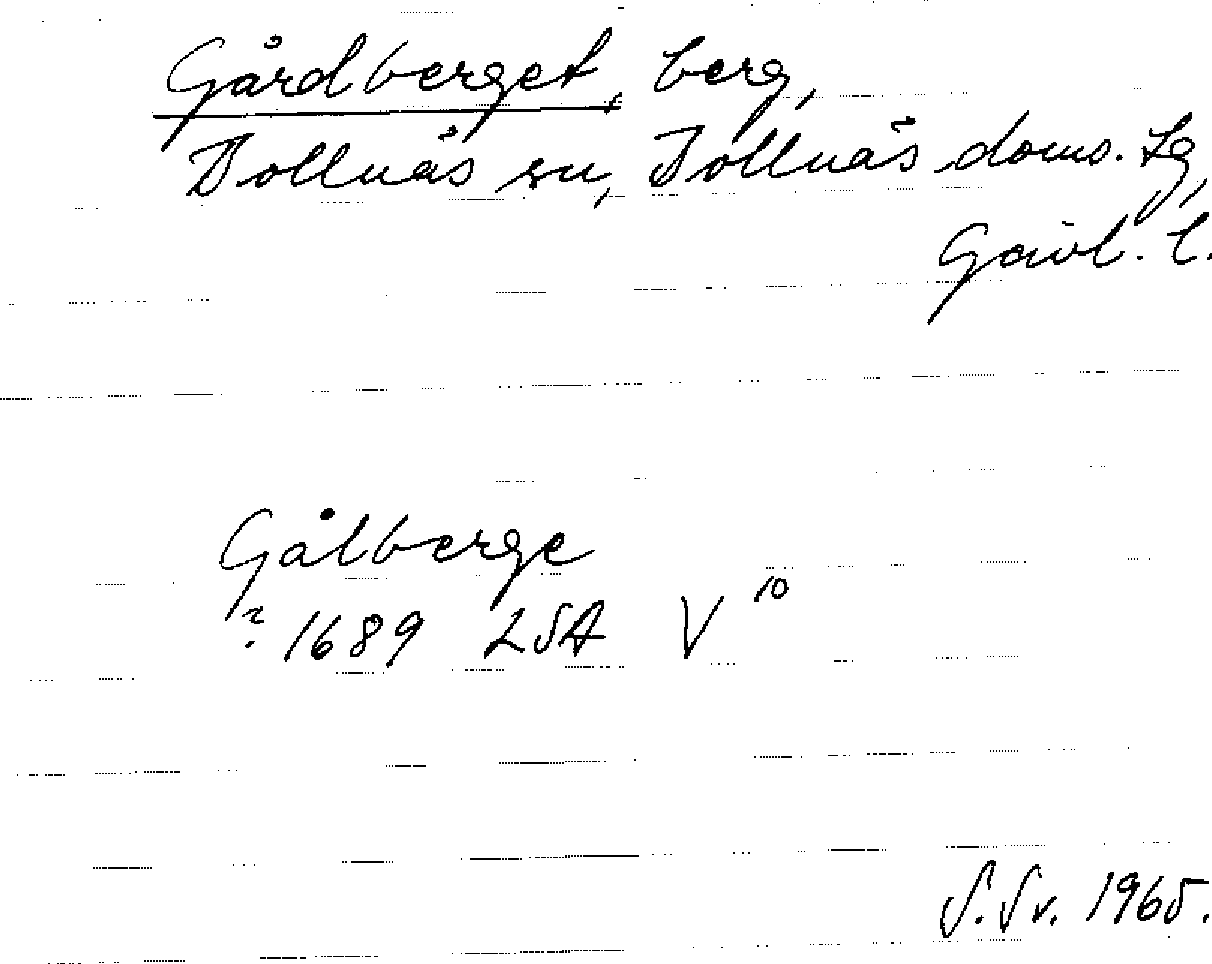 Gårdberget, berg,
Bollnäs sn, Bollnäs doms. lg,
Gävl. l.
Gålberge
? 1689 LSA V 10
S. Sv. 1965.